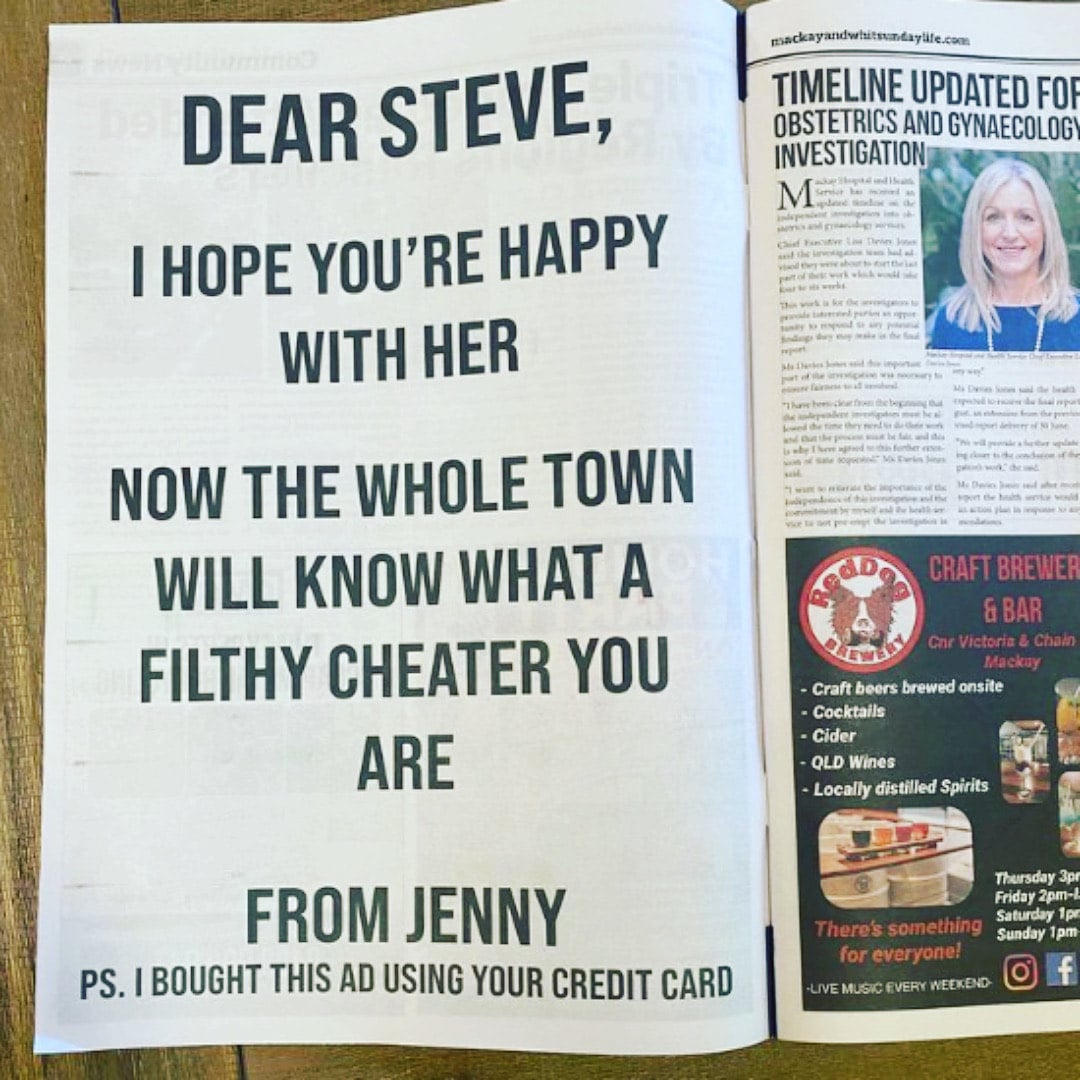 DEAR STEVE,
I HOPE YOU'RE HAPPY
WITH HER
NOW THE WHOLE TOWN
WILL KNOW WHAT A
FILTHY CHEATER YOU
ARE
FROM JENNY
PS. I BOUGHT THIS AD USING YOUR CREDIT CARD
mackayandwhitsundaylife.com
TIMELINE UPDATED FOR
OBSTETRICS AND GYNAECOLOGY
INVESTIGATION
Mackay Hospital and Health
Service has received an
updated timeline on the
independent investigation into ob-
stetrics and gynaecology services.
Chief Executive Lisa Davies Jones
said the investigation team had ad-
vised they were about to start the last
part of their work which would take
four to six weeks.
This work is for the investigators to
provide interested parties an oppor-
tunity to respond to any potential
findings they may make in the final
report.
Ms Davies Jones said this important
part of the investigation was necessary to
ensure fairness to all involved.
"I have been clear from the beginning that
the independent investigators must be al-
lowed the time they need to do their work
and that the process must be fair, and this
is why I have agreed to this further exten-
sion of time requested," Ms Davies Jones
said.
"I want to reiterate the importance of the
independence of this investigation and the
commitment by myself and the health ser-
vice to not pre-empt the investigation in
Mackay Hospital and Health Service Chief Executive
Davies Jones
any way."
Ms Davies Jones said the health
expected to receive the final report
an extension from the
report delivery of 30 June.
"We will provide a further update
closer to the conclusion of the
work," she said.
Ms Davies Jones said after
report the health service would
an action plan in response to
RedDog
BREWERY
CRAFT BREWER
& BAR
Cnr Victoria & Chain
Mackay
- Craft beers brewed onsite
- Cocktails
- Cider
- QLD Wines
- Locally distilled Spirits
There's something
for everyone!
Thursday 3p
Friday 2pm-
Saturday 1p
Sunday 1pm-
-LIVE MUSIC EVERY WEEKEND-